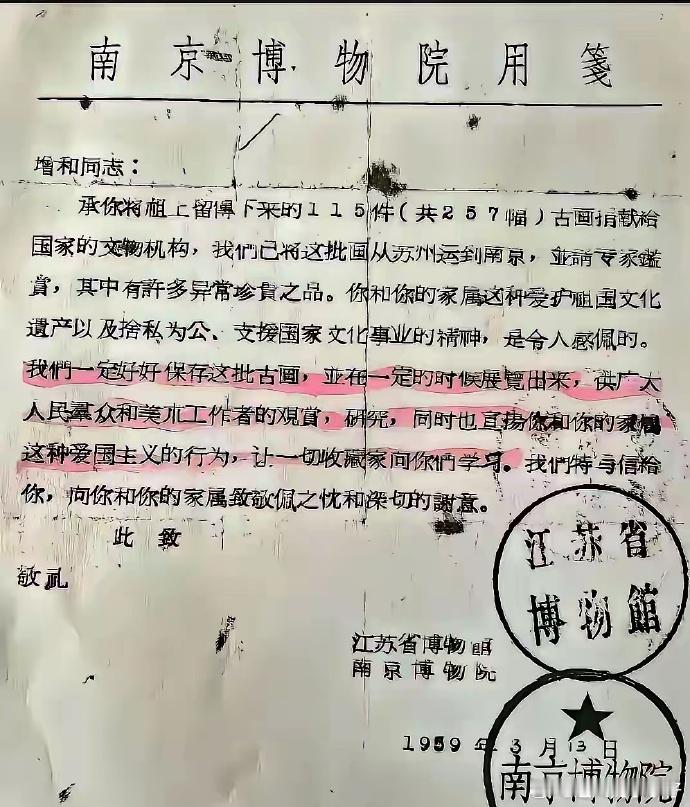 南京博物院用箋
增和同志：
承你将祖上留傳下来的115件（共257幅）古画捐献給
国家的文物机构，我们已将这批画从苏州运到南京，並請专家鑑
賞，其中有許多异常珍貴之品。你和你的家属这种爱护祖国文化
遺产以及捨私为公、支援国家文化事业的精神，是令人感佩的。
我們一定好好保存这批古画，並在一定的时候展覽出来，供广大
人民羣众和美朮工作者的观賞，研究，同时也宣扬你和你的家属
这种爱国主义的行为，让一切收藏家向你們学习。我們特与信給
你，向你和你的家属致敬佩之忱和深切的謝意。
此致
敬礼
江苏省博物館
江苏省博物館
南京博物院
1959年3月13日
南京博物院